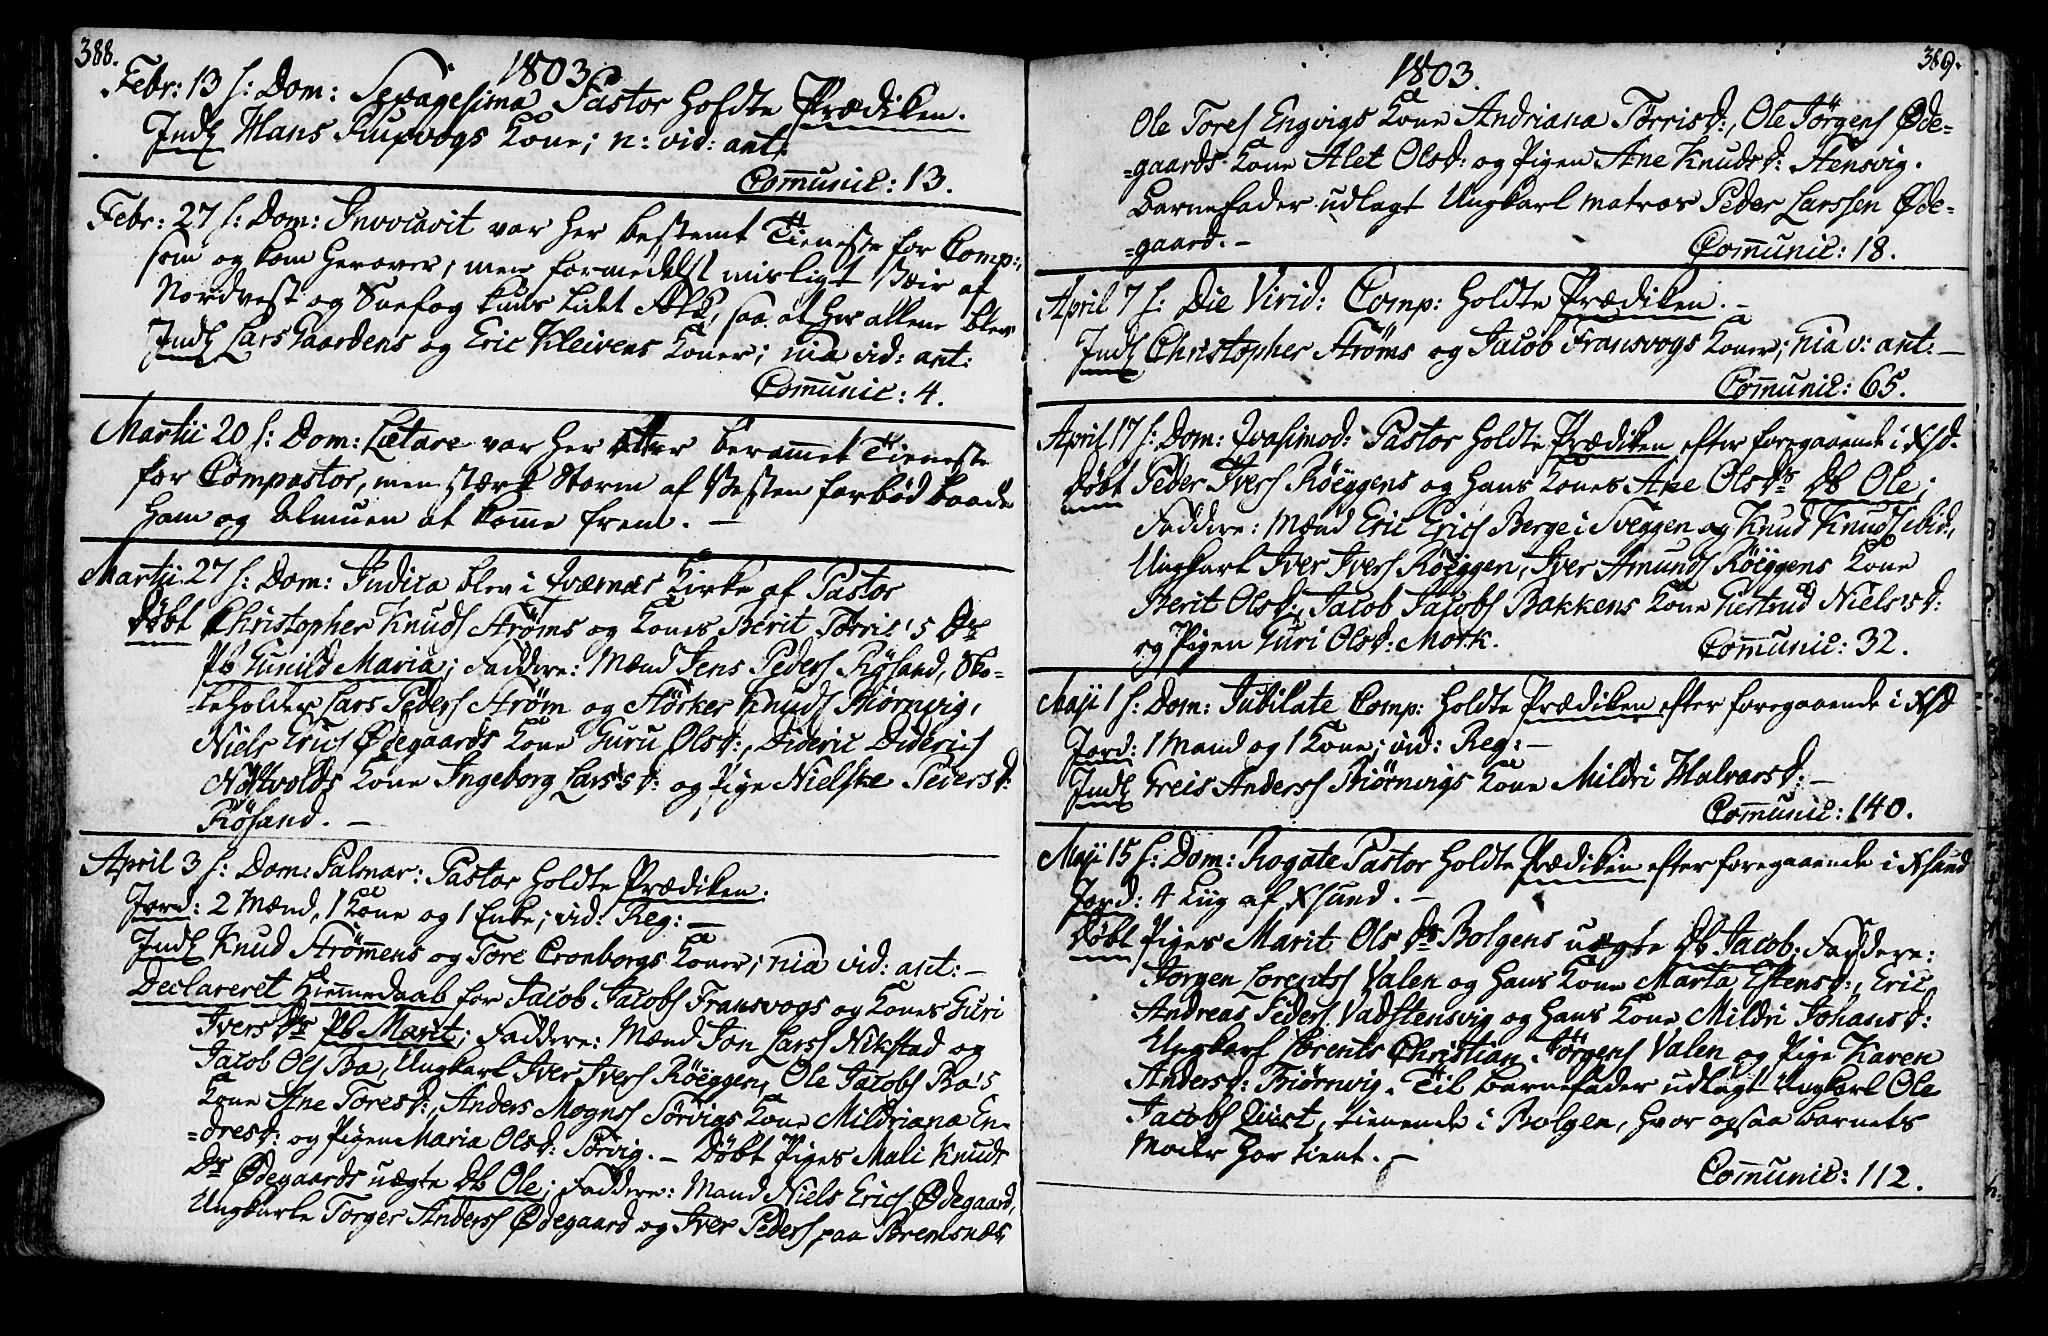 388.
1803.
Febr: 13 s: Dom: Sexagesima Pastor holdte Prædiken.
Indl Hans Kupvogs Kone; n: vid: ant:
Com̄unic: 13.
Febr: 27 s: Dom: Invocavit var her bestemt Tieneste for Comp:,
som og kom herover, men formedelst misligt Veir af
Nordvest og Sneefog kuns lidt Folk, saa at her allene blev
Indl Lars Gaardens og Eric Kleivens Koner; nia vid: ant:
Com̄unic: 4.
Martii 20 s: Dom: Lætare var her berammet Tieneste
for Compastor, men stærk Storm af Vesten forbød baade
ham og Almuen at kom̄e frem. —
Martii 27 s: Dom: Judica blev i Qværnæs Kirke af Pastor
Døbt Christopher Knuds Strøms og Kones Berit Torris's Dr
Pb Gunild Maria; Faddere: Mænd Jens Peders Røsand, Sko-
-leholder Lars Peders Strøm og Størker Knuds Biørnvig,
Niels Erics Ødegaards Kone Guru Olsd:, Dideric Diderics
Nøstvolds Kone Ingeborg Lars'sd: og Pige Nielske Pedersd:
Røsand. —
April 3 s: Dom: Palmar: Pastor holdte Prædiken.
Jord: 2 Mænd, 1 Kone og 1 Enke; vid: Reg: —
Indl Knud Strøm̄ens og Tore Cronborgs Koner; nia vid: ant: —
Declareret Hiem̄edaab for Jacob Jacobs Fransvogs og Kones Guri
Ivers Dr Pb Marit; Faddere: Mænd Jon Larss Nikstad og
Jacob Ols Ba, Ungkarl Iver Ivers Røeggen, Ole Jacobs Ba's
Kone Ane Toresd:, Anders Mognss Sørvigs Kone Mildriana En-
-dresd: og Pigen Maria Olsd: Sørvig. — Døbt Piges Mali Knuds
Dr Ødegaards uægte Db Ole; Faddere: Mand Niels Erics Ødegaard,
Ungkarle Torger Anderss Ødegaard og Iver Peders paa Bremsnæs
389.
1803.
Ole Tores Engvigs Kone Andriana Tørrisd:, Ole Jörgens Øde-
-gaards Kone Alet Olsd: og Pigen Ane Knudsd: Stensvig.
Barnefader udlagt Ungkarl Matros Peder Larssen Øde-
-gaard. —
Com̄unic: 18.
April 7 s: Die Virid: Comp: holdte Prædiken. —
Indl Christopher Strøms og Jacob Fransvogs Koner; nia v: ant: —
Com̄unic: 65.
April 17 s: Dom: Qvasimod: Pastor holdte Prædiken efter foregaaende i Xsd.
Døbt Peder Ivers Røeggens og hans Kones Ane Olsdr Db Ole;
Faddere: Mænd Eric Erics Berge i Sveggen og Knud Knuds ibid:,
Ungkarl Iver Ivers Røeggen, Iver Amunds Røeggens Kone
Berit Olsd:, Jacob Jacobs Bakkens Kone Giertrud Niels'sd:
og Pigen Guri Olsd: Mork.
Com̄unic: 32.
Maji 1 s: Dom: Jubilate Comp: holdte Prædiken efter foregaaende i Xsd
Jord: 1 Mand og 1 Kone; vid: Reg: —
Indl Greis Anderss Biørnvigs Kone Mildri Halvarsd: —
Com̄unic: 140.
Maji 15 s: Dom: Rogate Pastor holdte Prædiken efter foregaaende i Xsund
Jord: 4 Liig af Xsund. —
Døbt Piges Marit Ols Dr Bolgens uægte Db Jacob; Faddere:
Jorgen Lorentss Valen og hans Kone Marta Estensd:, Eric
Andreas Peders Vadstensvig og hans Kone Mildri Johansd:
Ungkarl Lorents Christian Jørgens Valen og Pige Karen
Andersd: Biørnvig. Til Barnefader udlagt Ungkarl Ole
Jacobs Qvist, tienende i Bolgen, hvor ogsaa Barnets
Moder har tient. —
Com̄unic: 112.